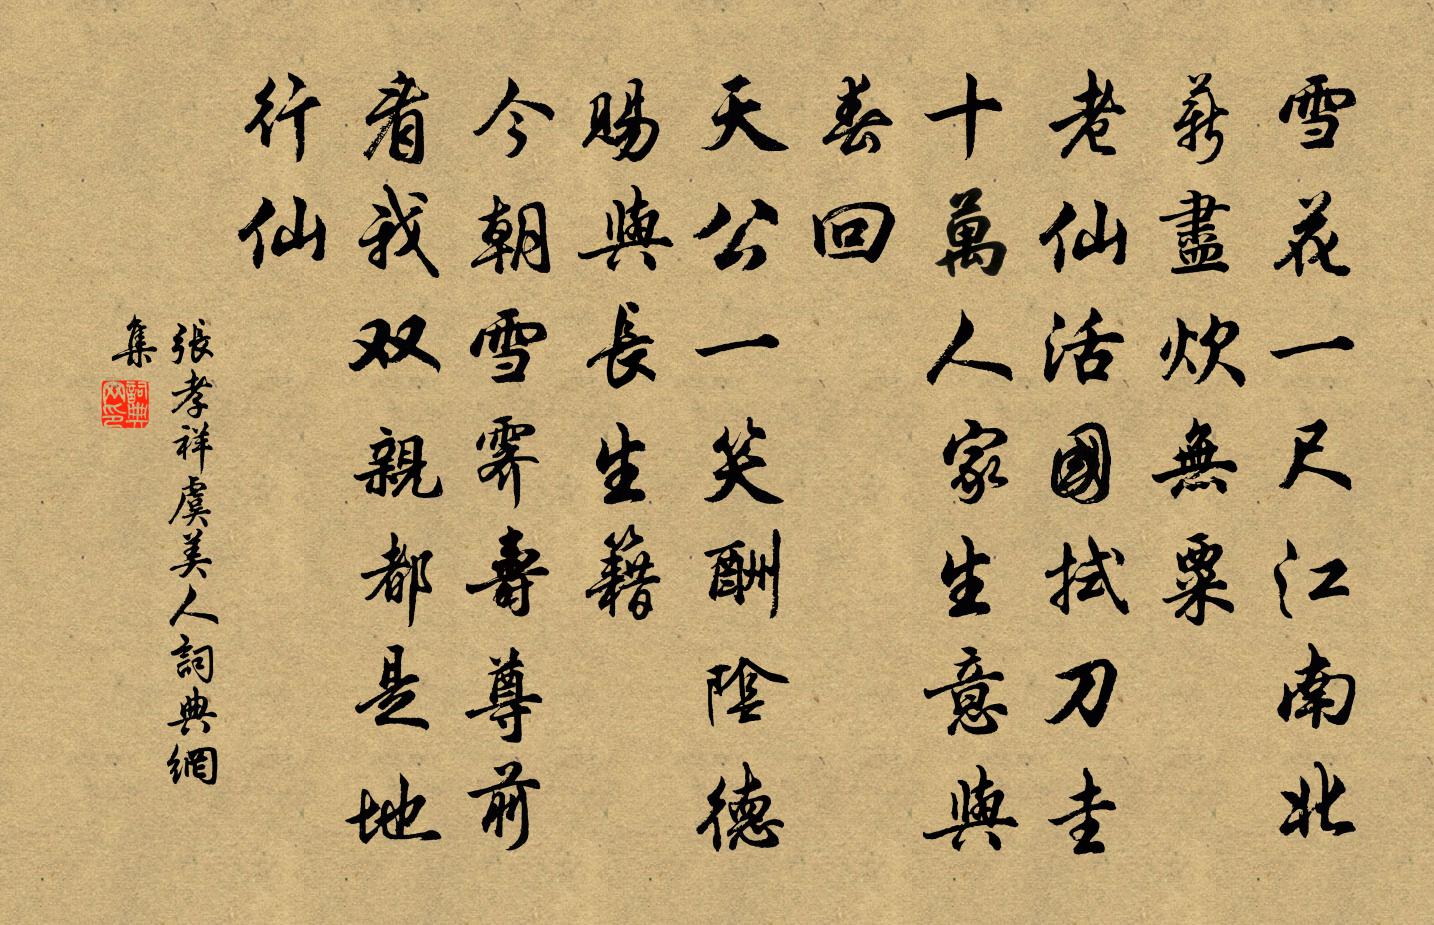 雪花一尺江南北
薪盡炊無粟
老仙活國拭刀圭
十萬人家生意與
春回
天公一笑酬陰德
賜與長生籍
今朝雪霽壽尊前
看我双親都是地
行仙
張孝祥虞美人詞典網
集
詞典网印